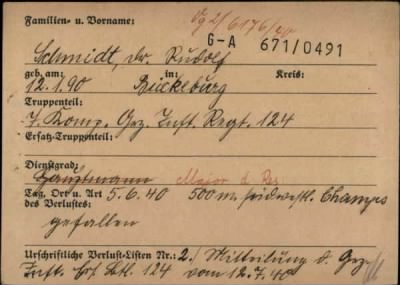 Familien- u. Vorname:
G-A 671/0491
Schmidt, Dr. Rudolf
geb. am: in: Kreis:
12.1.90 Bückeburg
Truppenteil:
7. Komp. Gez. Inft. Regt. 124
Ersatz-Truppenteil:
Dienstgrad:
Hauptmann Major d. Res.
Tag, Ort u. Art 5.6.40 500 m südwestl. Champs
des Verlustes:
gefallen
Urschriftliche Verlust-Listen Nr.: 2./ Mitteilung d. Gez.
Inft. Ers. Btl. 124 vom 12.7.40